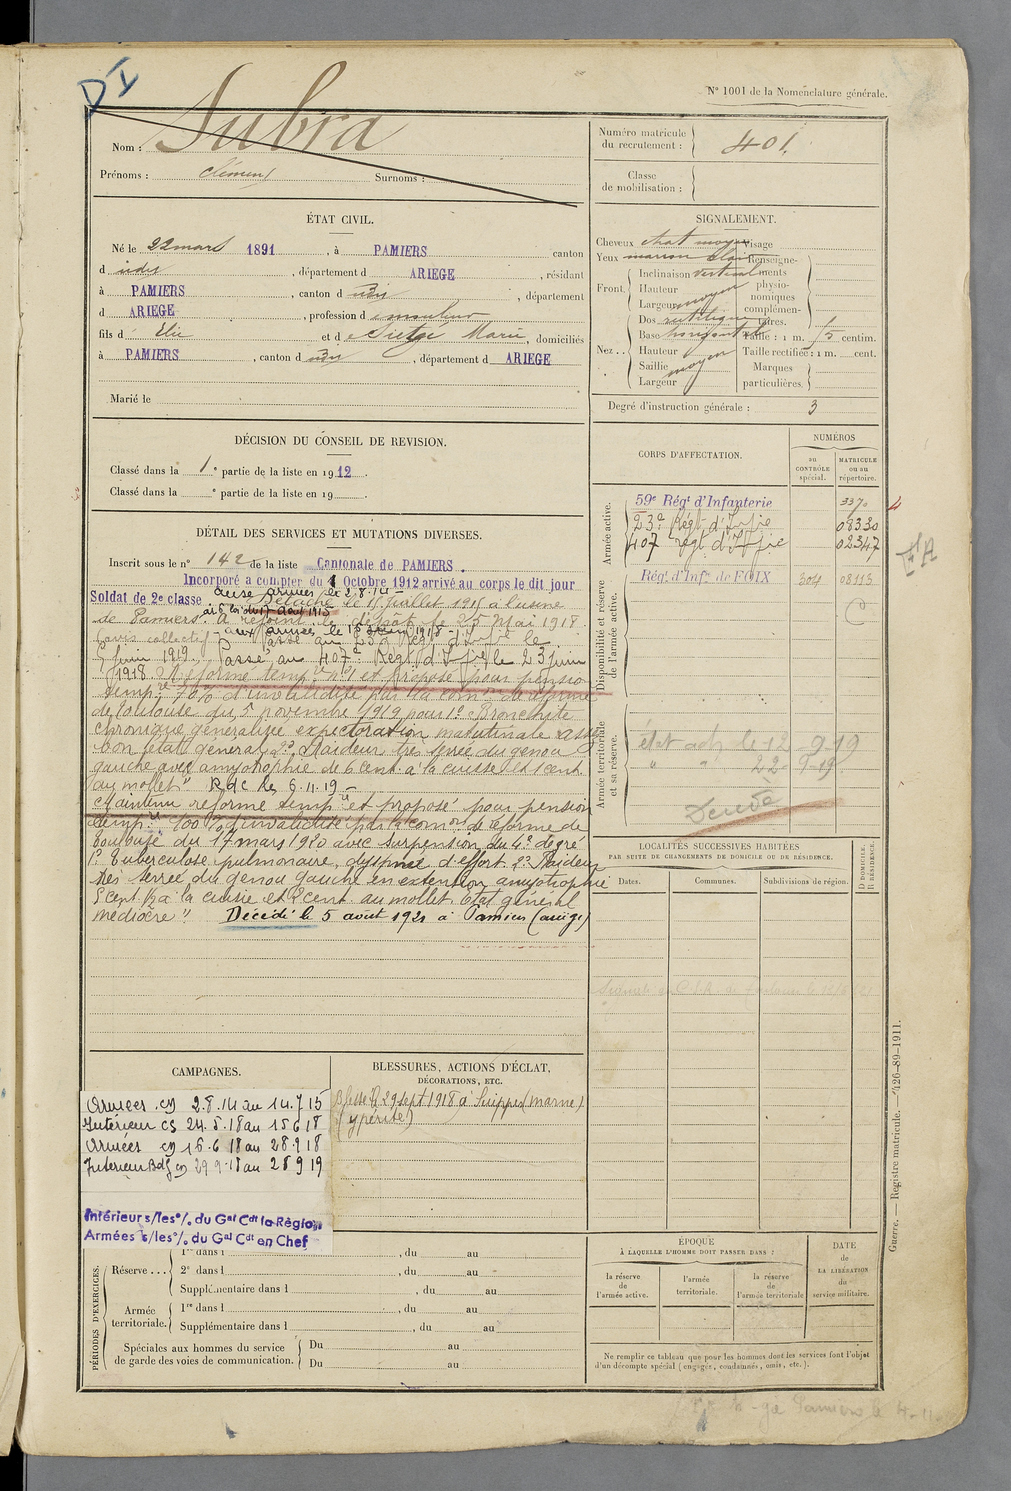 D I
N° 1001 de la Nomenclature générale.
Nom : Subra
Prénoms : Clément Surnoms :
Numéro matricule du recrutement : 401.
Classe de mobilisation :
ÉTAT CIVIL.
Né le 22 mars 1891, à PAMIERS canton
d udy, département d ARIEGE, résidant
à PAMIERS, canton d udy, département
d ARIEGE, profession d mouleur
fils d Elie et d Marie, domiciliés
à PAMIERS, canton d udy, département d ARIEGE
Marié le
SIGNALEMENT.
Cheveux chat moyen Visage
Yeux marron clair Renseignements physionomiques complémentaires.
Front. Inclinaison vertical
Hauteur
Largeur moyen
Nez . . Dos rectiligne
Base horizontale Taille : 1 m. 75 centim.
Hauteur Taille rectifiée : 1 m. cent.
Saillie moyen Marques
Largeur particulières.
Degré d'instruction générale : 3
DÉCISION DU CONSEIL DE REVISION.
Classé dans la 1e partie de la liste en 1912.
Classé dans la e partie de la liste en 19
DÉTAIL DES SERVICES ET MUTATIONS DIVERSES.
Inscrit sous le n° 142 de la liste Cantonale de PAMIERS.
Incorporé à compter du 1 Octobre 1912 arrivé au corps le dit jour
Soldat de 2e classe aux armées le 2.8.14 -
Détaché le 15 Juillet 1915 à l'usine
de Pamiers. A rejoint le dépôt le 25 Mai 1918.
Passé au 23e Régt d'Inf le
Juin 1919. Passé au 407e Régt d'Inf le 23 juin
1918. Réformé tempre n°1 et proposé pour pension
tempre 70% d'invalidité par la comon de réforme
de Toulouse du 5 novembre 1919 pour 1° Bronchite
chronique généralisée expectoration matutinale assez
bon état général 2° Raideur très serrée du genou
gauche avec amyotrophie de 6 cent. à la cuisse et 1 cent.
au mollet" Rdc le 6.11.19 -
Maintenu réformé tempre et proposé pour pension
tempre 100% d'invalidité par la comon de réforme de
Toulouse du 17 mars 1920 avec surpension du 4e degré
1° Tuberculose pulmonaire, dyspnée d'effort 2° Raideur
très serrée du genou gauche en extension amyotrophie
5 cent. 1/2 à la cuisse et 2 cent. au mollet Etat général
médiocre" Décédé le 5 aout 1921 à Pamiers (Ariège)
CORPS D'AFFECTATION.
NUMÉROS
au CONTRÔLE spécial.
MATRICULE ou au répertoire.
Armée active.
59e Régt d'Infanterie 3370
23e Régt d'Infie 08330
407 Régt d'Infie 02347
Disponibilité et réserve de l'armée active.
Régt d'Infie de FOIX 304 08113
C
Armée territoriale et sa réserve.
état adh le 12-9-19
" " 22-9-19
Décédé
LOCALITÉS SUCCESSIVES HABITÉES
PAR SUITE DE CHANGEMENTS DE DOMICILE OU DE RÉSIDENCE.
Dates. Communes. Subdivisions de région. D DOMICILE. R RÉSIDENCE.
CAMPAGNES.
Armées CD 2.8.14 au 14.7.15
Intérieur CS 24.5.18 au 15 6 18
Armées CD 16.6.18 au 28.9.18
Intérieur Bd CD 29 9 18 au 28 9 19
Intérieur s/les o/. du Gal Cdt la Région
Armées s/les o/. du Gal Cdt en Chef
BLESSURES, ACTIONS D'ÉCLAT,
DÉCORATIONS, ETC.
Blessé le 29 sept 1918 à Suippes (Marne)
(ypérite)
PÉRIODES D'EXERCICES.
Réserve . . . 1re dans l , du au
2e dans l , du au
Supplémentaire dans l , du au
Armée territoriale. 1re dans l , du au
Supplémentaire dans l , du au
Spéciales aux hommes du service de garde des voies de communication. Du au
Du au
ÉPOQUE
À LAQUELLE L'HOMME DOIT PASSER DANS :
la réserve de l'armée active.
l'armée territoriale.
la réserve de l'armée territoriale
DATE de LA LIBÉRATION du service militaire.
Ne remplir ce tableau que pour les hommes dont les services font l'objet
d'un décompte spécial (engagés, condamnés, omis, etc.).
Guerre. — Registre matricule. — 426-89-1911.